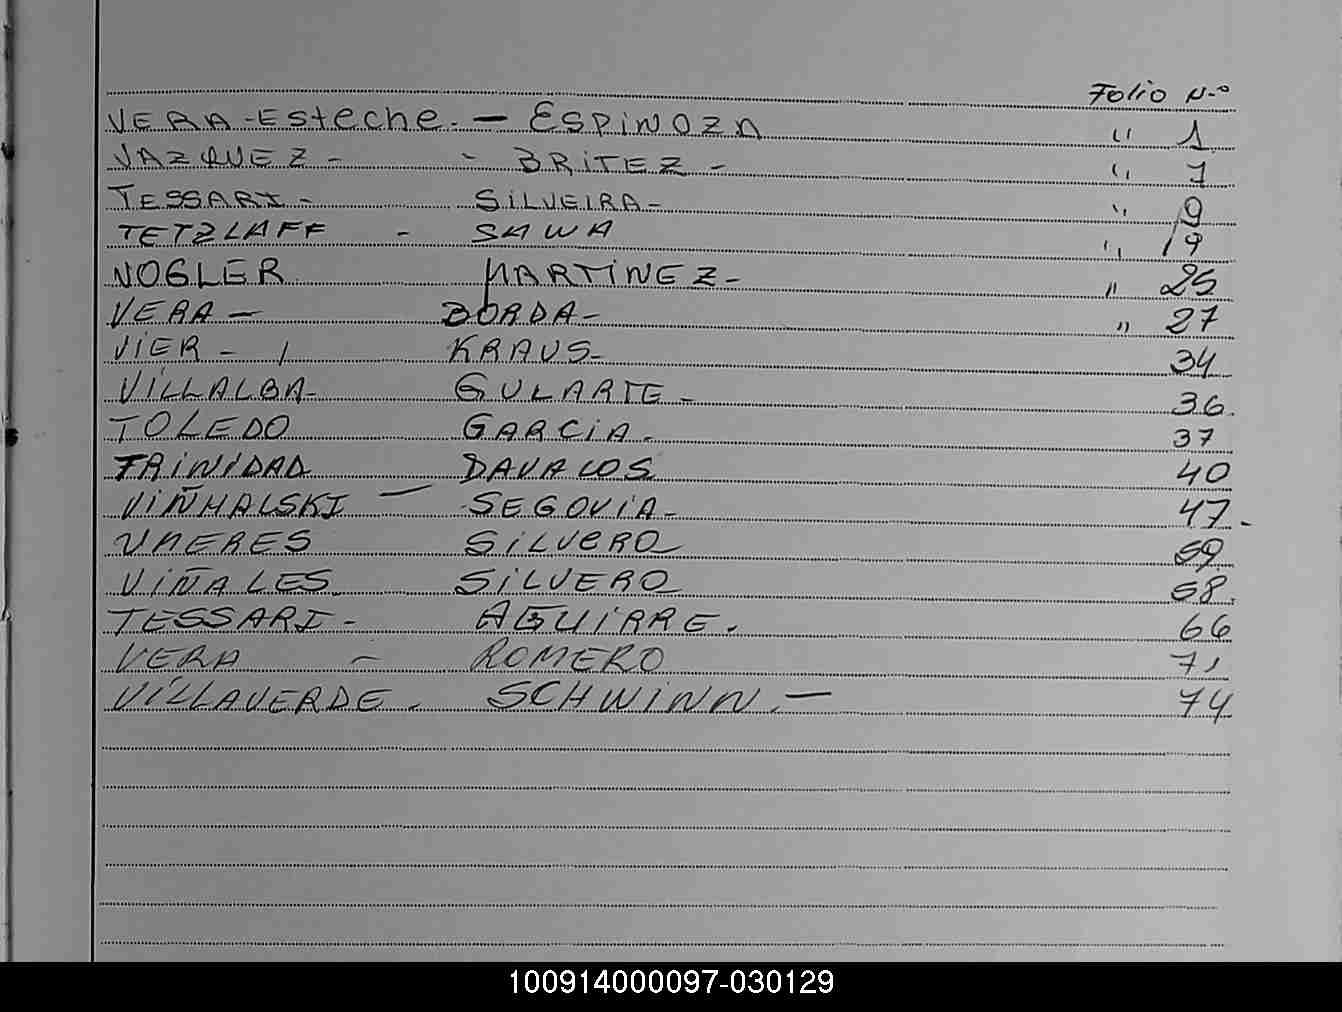 Folio N-o
VERA-Esteche. — ESPINOZA " 1
VAZQUEZ - - BRITEZ - " 7
TESSARI - SILVEIRA - " 9
TETZLAFF - SAWA " 19
VOGLER MARTINEZ - " 25
VERA - BORDA - " 27
VIER - KRAUS - 34
VILLALBA - GULARTE - 36.
TOLEDO GARCIA. 37
TRINIDAD DAVALOS 40
VIÑHALSKI — SEGOVIA - 47.
SILVERO
VIÑALES SILVERO 58.
TESSARI - AGUIRRE. 66
VERA - ROMERO 71
VILLAVERDE. SCHWINN. — 74
100914000097-030129